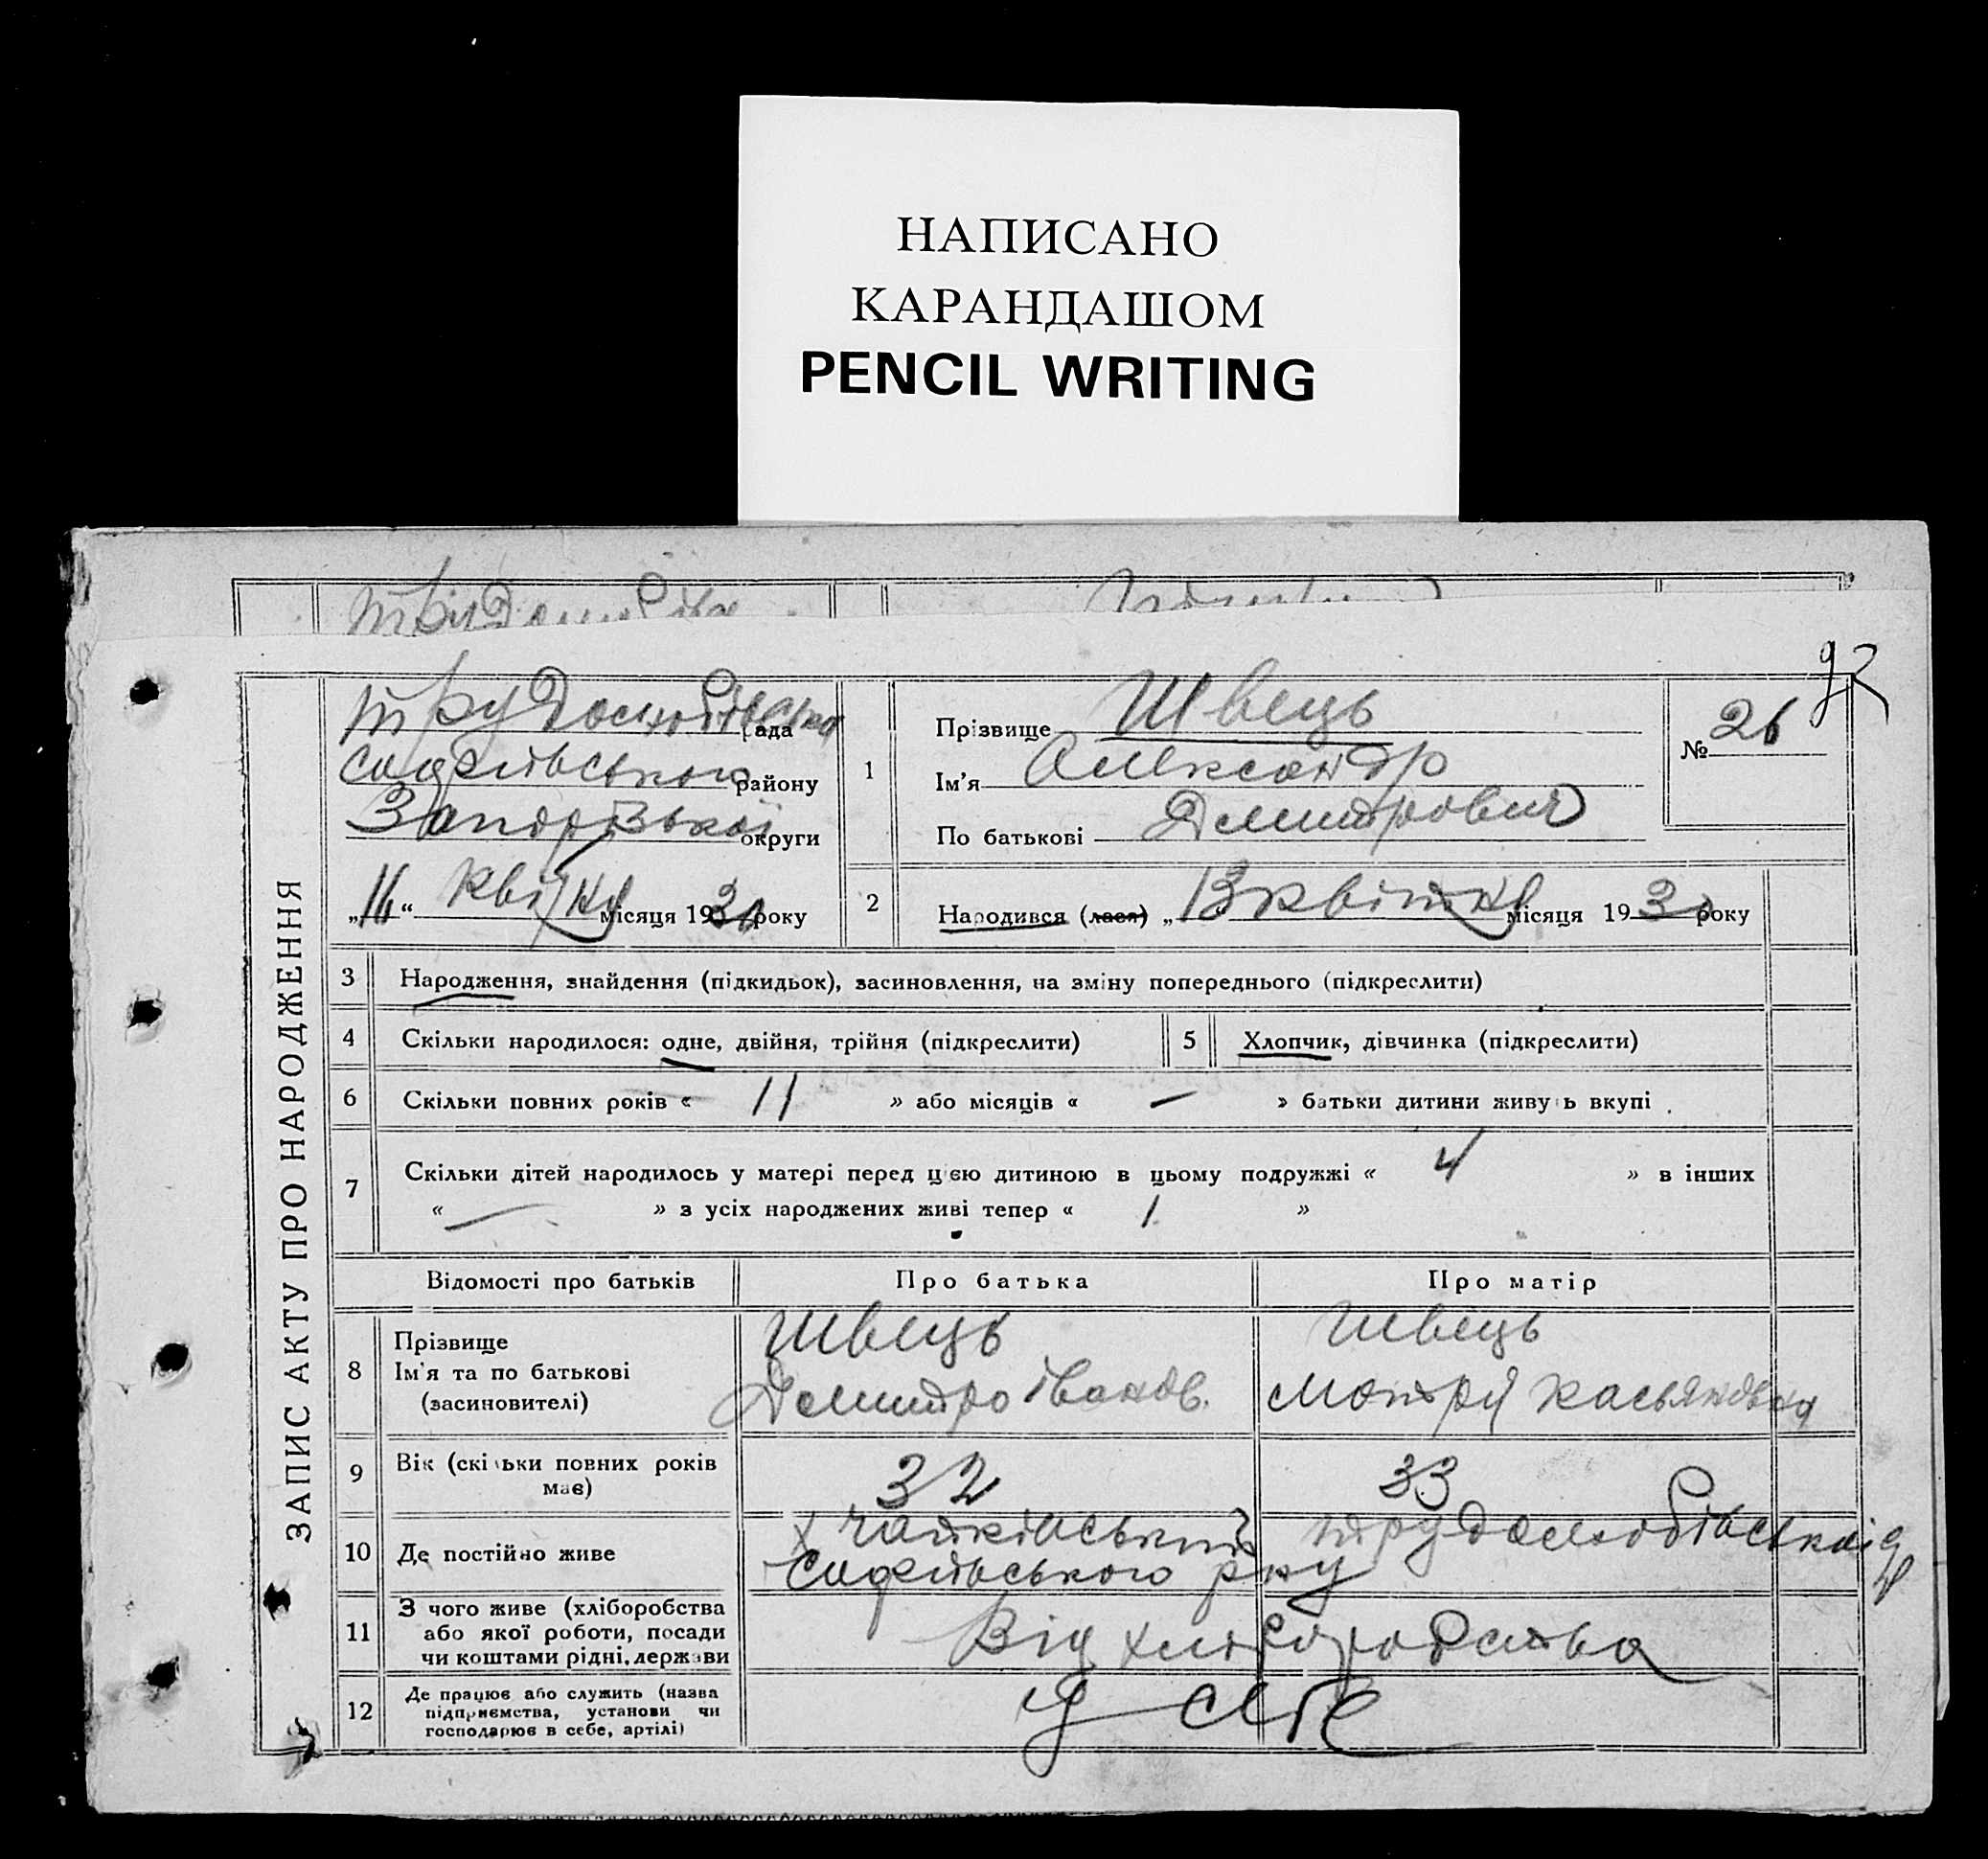 НАПИСАНО
КАРАНДАШОМ
PENCIL WRITING
92
ЗАПИС АКТУ ПРО НАРОДЖЕННЯ
Трудолюбівська рада
Софіївського району
Запорізької округи
„16“ квітня місяця 1930 року
1
Прізвище Швець
Ім'я Олександр
По батькові Дмитрович
№ 26
2
Народився (лася) „13 квітня місяця 1930 року
3 Народження, знайдення (підкидьок), засиновлення, на зміну попереднього (підкреслити)
4 Скільки народилося: одне, двійня, трійня (підкреслити)
5 Хлопчик, дівчинка (підкреслити)
6 Скільки повних років « 11 » або місяців « — » батьки дитини живуть вкупі
7 Скільки дітей народилось у матері перед цією дитиною в цьому подружжі « 4 » в інших
« — » з усіх народжених живі тепер « 1 »
Відомості про батьків Про батька Про матір
8 Прізвище Швець Швець
Ім'я та по батькові Дмитро Іванов. Мотря Касьяновна
(засиновителі)
9 Вік (скільки повних років має) 32 33
10 Де постійно живе
х Чайківський Трудолюбівської
Софіївського р-ну
11 З чого живе (хліборобства
або якої роботи, посади
чи коштами рідні, держави
Від хліборобства
12 Де працює або служить (назва
підприємства, установи чи
господарює в себе, артілі)
У себе